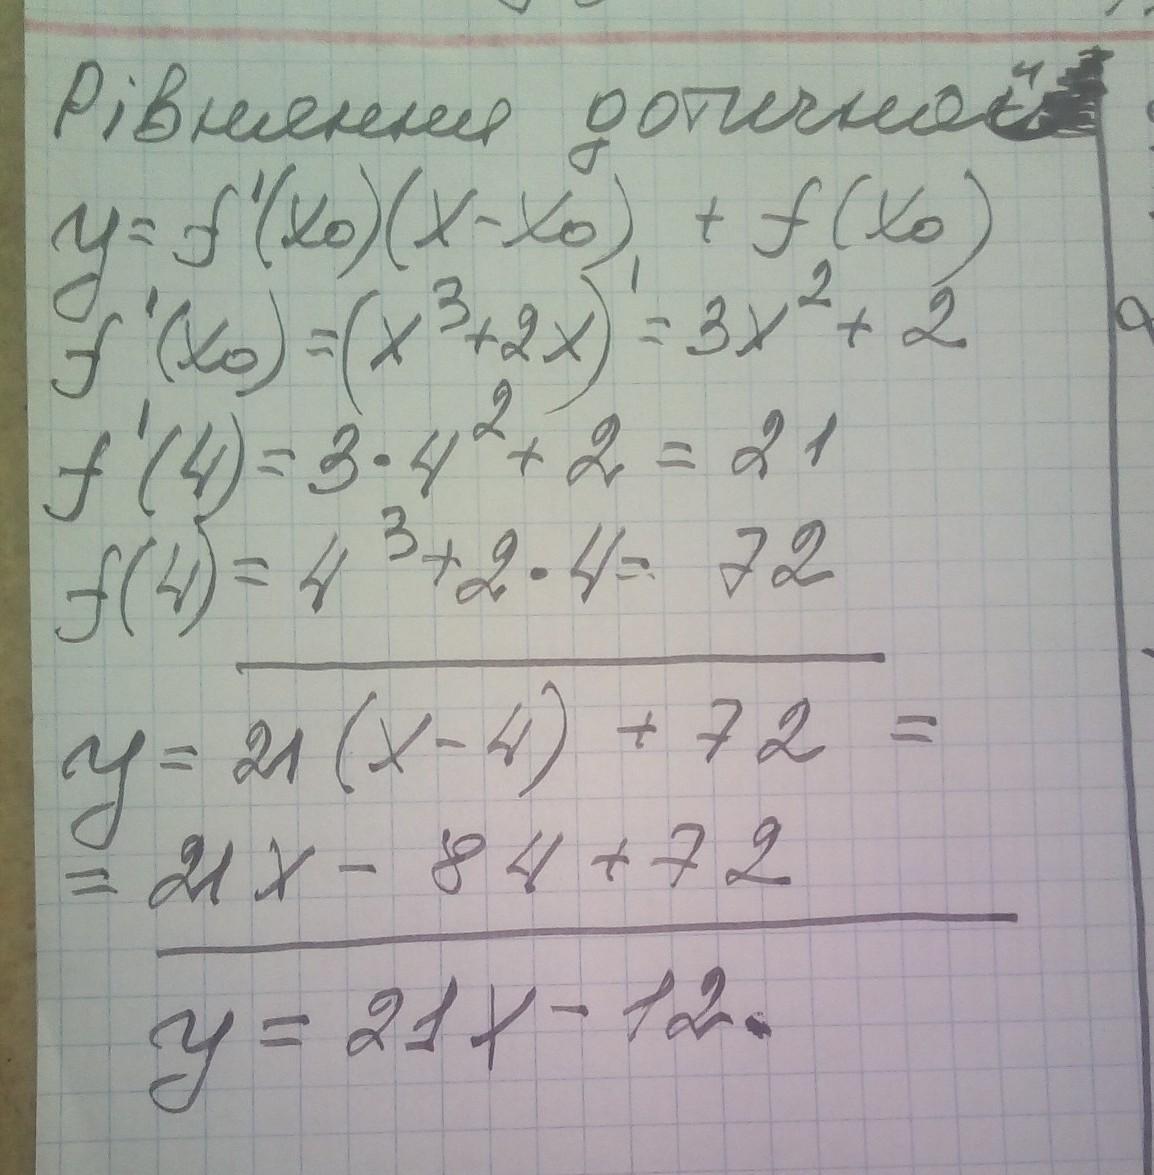 Рівняння дотичної
y = f'(x₀)(x - x₀) + f(x₀)
f'(x₀) = (x³ + 2x)' = 3x² + 2
f'(4) = 3 · 4² + 2 = 21
f(4) = 4³ + 2 · 4 = 72
y = 21(x - 4) + 72 =
= 21x - 84 + 72
y = 21x - 12.